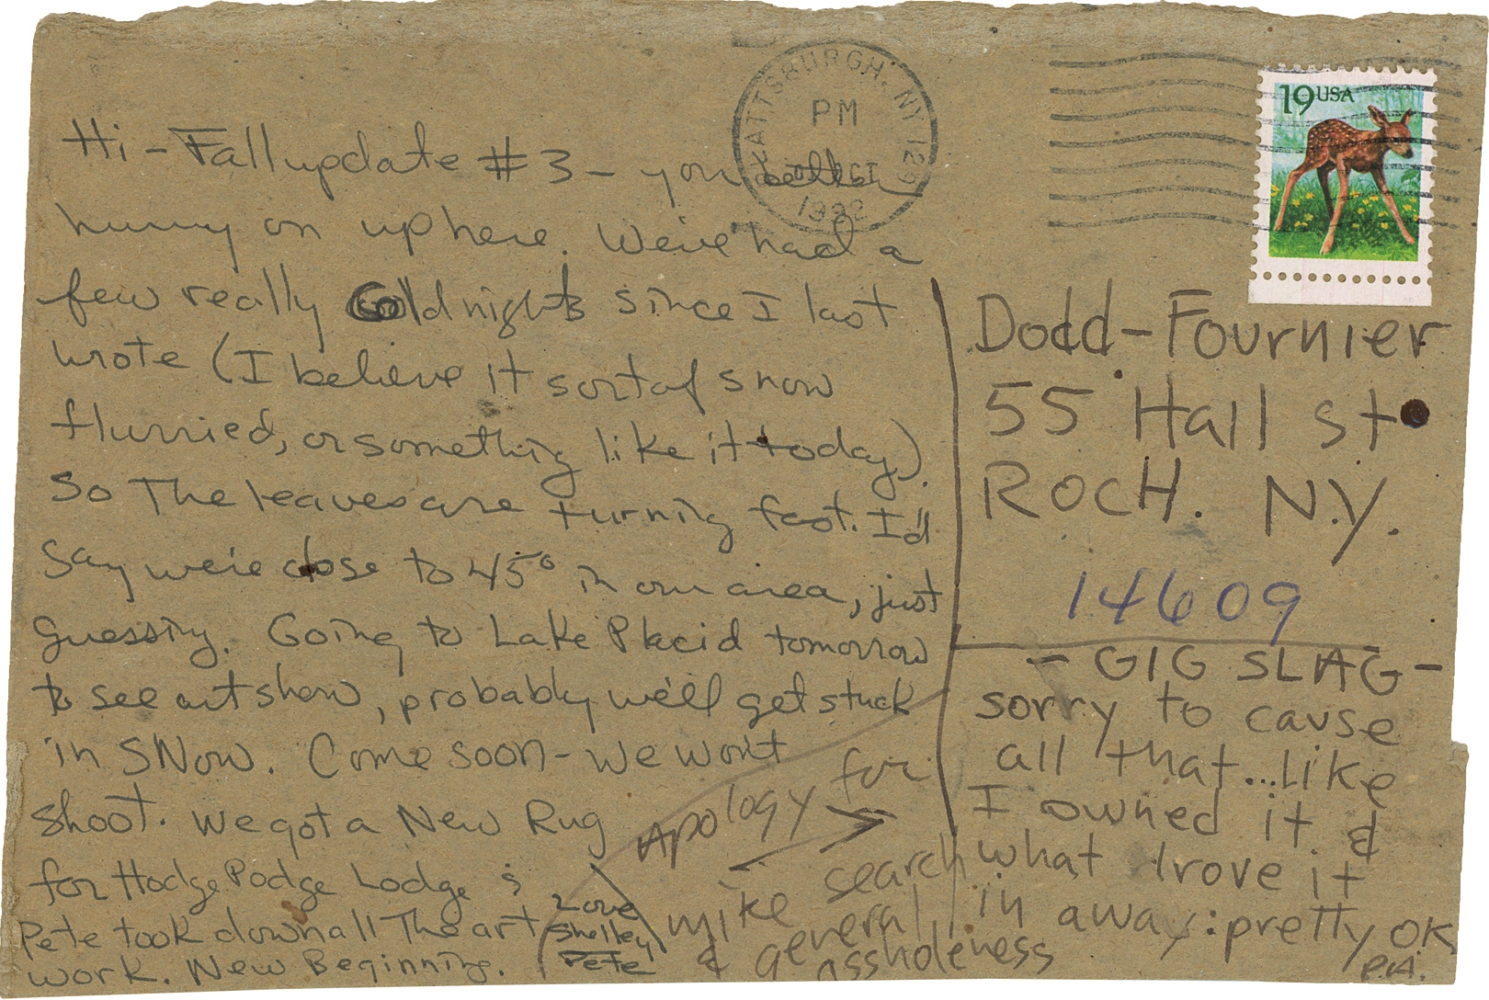 PLATTSBURGH, NY 129
PM
OCT
1992
19 USA
Hi - Fall update #3 - you better
hurry on up here. We've had a
few really cold nights since I last
wrote (I believe it sortof snow
flurried, or something like it today).
So The leaves are turning fast. I'd
say we're close to 45° in our area, just
guessing. Going to Lake Placid tomorrow
to see art show, probably we'll get stuck
in SNow. Come soon - we won't
shoot. We got a New Rug
for Hodge Podge Lodge &
Pete took down all The art
work. New Beginning.
Love
Shelley
Pete
Dodd-Fournier
55 Hall st
ROCH. N.Y.
14609
Apology for
mike search
& general
assholeness
- GIG SLAG -
sorry to cause
all that...like
I owned it &
what I rove it
in away: pretty OK
P.A.